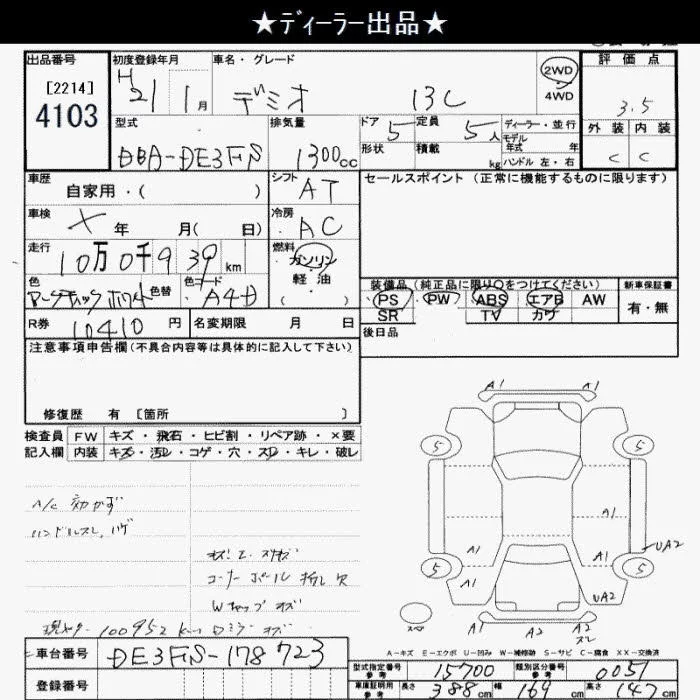 ★ディーラー出品★
出品番号 初度登録年月 車名・グレード 評価点
[2214] H 21 1月 デミオ 13C 2WD 4WD 3.5
4103
型式 排気量 ドア 5 定員 5人 ディーラー・並行 外装 内装
DBA-DE3FS 1300cc 形状 積載 kg モデル年式 年 ハンドル 左・右 C C
車歴 シフト AT セールスポイント (正常に機能するものに限ります)
自家用・( )
車検 年 月( 日) 冷房 AC
走行 10万0千9 39 km 燃料 ガソリン
軽油
( )
色 色替 色コード A4D
装備品 (純正品に限り○をつけてください) 新車保証書
PS PW ABS エアB AW 有・無
SR TV カワ
R券 10410 円 名変期限 月 日 後日品
注意事項申告欄 (不具合内容等は具体的に記入して下さい)
修復歴 有 [箇所 ]
検査員 FW キズ・飛石・ヒビ割・リペア跡・×要
記入欄 内装 キズ・汚レ・コゲ・穴・スレ・キレ・破レ
A/C 効かず
ハンドルスレ, ハゲ
コーナーポール 折レ欠
Wキャップキズ
100952 km
A1 A1
S S
A1
UA2
A1 A1
S S
A1 UA2
A1 A2 A2
スレ
A-キズ E-エクボ U-凹み W-補修跡 S-サビ C-腐食 XX-交換済
車台番号 DE3FS-178723
型式指定番号 参考 15700 類別区分番号 参考 0051
登録番号
車庫証明用 参考 長さ 388 cm 幅 169 cm 高さ 147 cm